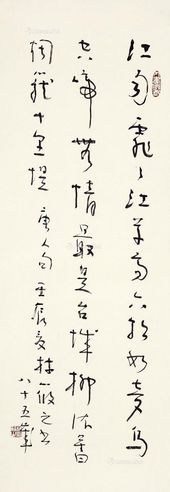 江雨霏霏江草齐六朝如梦鸟
空啼无情最是台城柳依旧
烟笼十里堤 唐人句 壬辰夏林筱之书
八十五岁